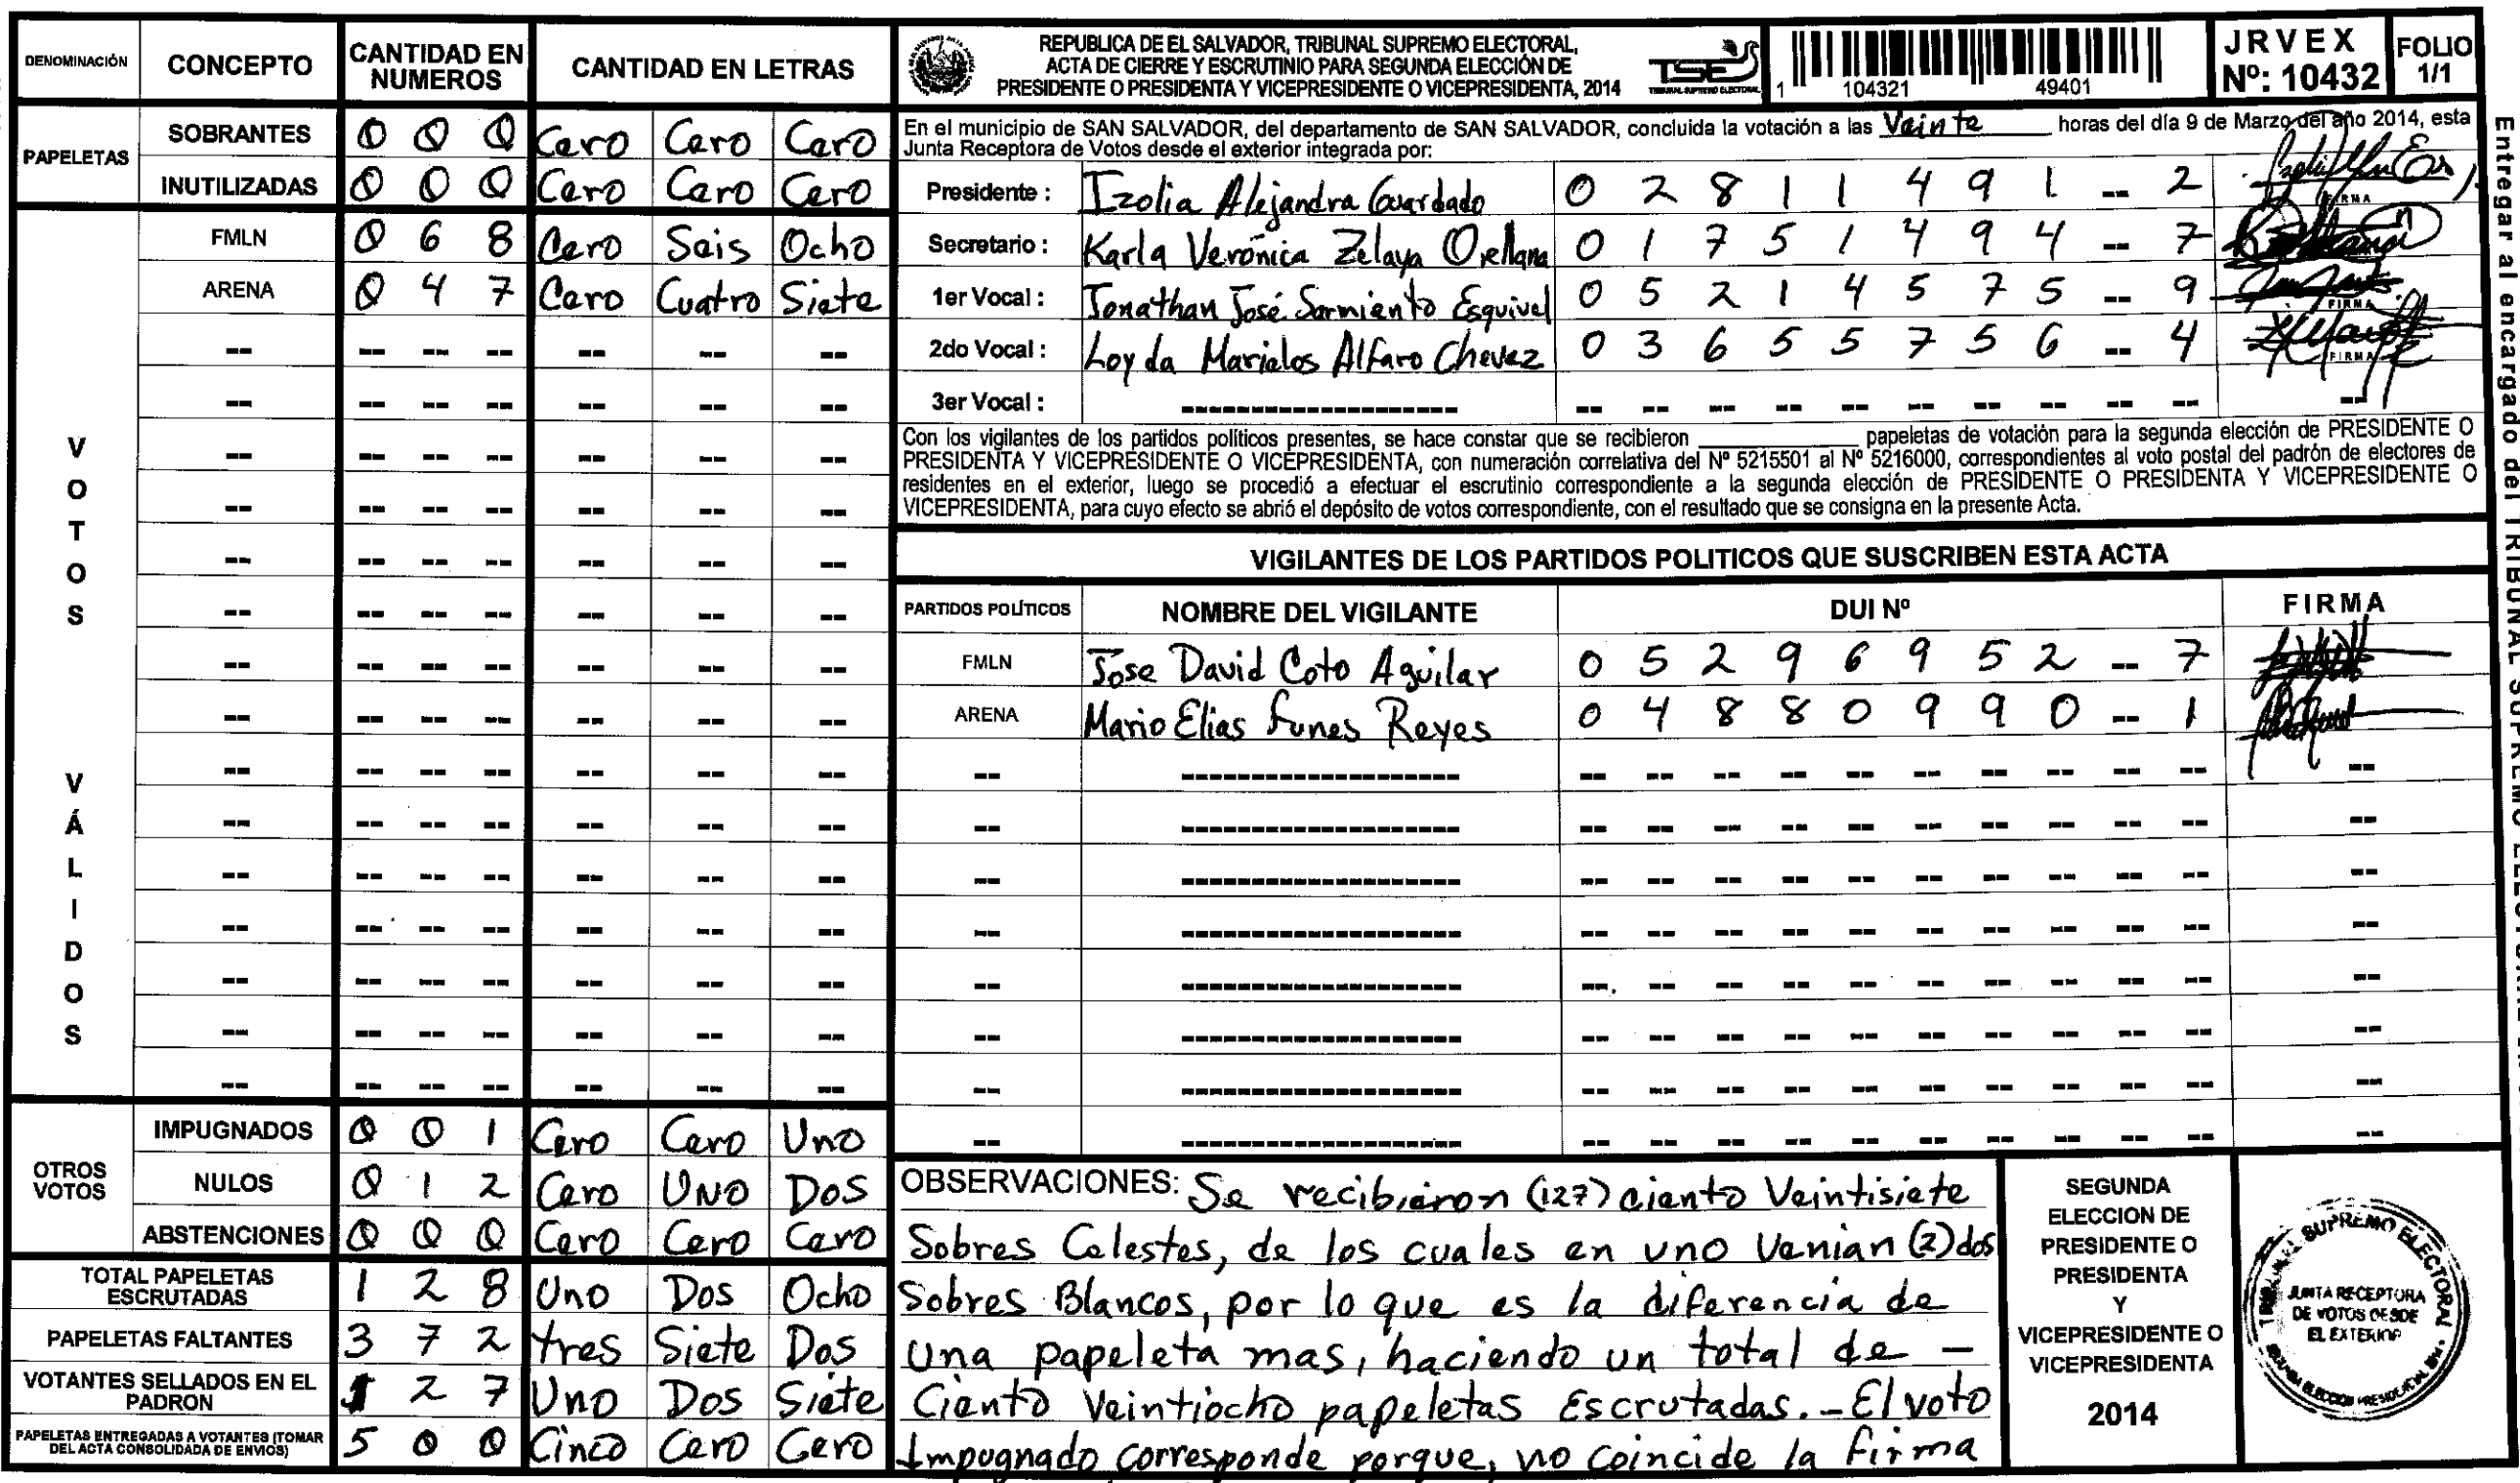 DENOMINACIÓN CONCEPTO CANTIDAD EN NUMEROS CANTIDAD EN LETRAS
PAPELETAS
SOBRANTES 0 0 0 Cero Cero Cero
INUTILIZADAS 0 0 0 Cero Cero Cero
VOTOS VÁLIDOS
FMLN 0 6 8 Cero Seis Ocho
ARENA 0 4 7 Cero Cuatro Siete
OTROS VOTOS
IMPUGNADOS 0 0 1 Cero Cero Uno
NULOS 0 1 2 Cero UNO DOS
ABSTENCIONES 0 0 0 Cero Cero Cero
TOTAL PAPELETAS ESCRUTADAS 1 2 8 Uno Dos Ocho
PAPELETAS FALTANTES 3 7 2 tres Siete Dos
VOTANTES SELLADOS EN EL PADRON 1 2 7 Uno Dos Siete
PAPELETAS ENTREGADAS A VOTANTES (TOMAR DEL ACTA CONSOLIDADA DE ENVIOS) 5 0 0 Cinco Cero Cero
REPUBLICA DE EL SALVADOR, TRIBUNAL SUPREMO ELECTORAL,
ACTA DE CIERRE Y ESCRUTINIO PARA SEGUNDA ELECCIÓN DE
PRESIDENTE O PRESIDENTA Y VICEPRESIDENTE O VICEPRESIDENTA, 2014
TSE
TRIBUNAL SUPREMO ELECTORAL
1 104321 49401
JRVEX Nº: 10432
FOLIO 1/1
En el municipio de SAN SALVADOR, del departamento de SAN SALVADOR, concluida la votación a las Veinte horas del día 9 de Marzo del año 2014, esta
Junta Receptora de Votos desde el exterior integrada por:
Presidente : Izolia Alejandra Guardado 0 2 8 1 1 4 9 1 -- 2
Secretario : Karla Verónica Zelaya Orellana 0 1 7 5 1 4 9 4 -- 7
1er Vocal : Jonathan José Sarmiento Esquivel 0 5 2 1 4 5 7 5 -- 9 FIRMA
2do Vocal : Loyda Marielos Alfaro Chevez 0 3 6 5 5 7 5 6 -- 4 FIRMA
3er Vocal :
Con los vigilantes de los partidos políticos presentes, se hace constar que se recibieron ____ papeletas de votación para la segunda elección de PRESIDENTE O
PRESIDENTA Y VICEPRESIDENTE O VICEPRESIDENTA, con numeración correlativa del Nº 5215501 al Nº 5216000, correspondientes al voto postal del padrón de electores de
residentes en el exterior, luego se procedió a efectuar el escrutinio correspondiente a la segunda elección de PRESIDENTE O PRESIDENTA Y VICEPRESIDENTE O
VICEPRESIDENTA, para cuyo efecto se abrió el depósito de votos correspondiente, con el resultado que se consigna en la presente Acta.
VIGILANTES DE LOS PARTIDOS POLITICOS QUE SUSCRIBEN ESTA ACTA
PARTIDOS POLÍTICOS NOMBRE DEL VIGILANTE DUI Nº FIRMA
FMLN Jose David Coto Aguilar 0 5 2 9 6 9 5 2 -- 7
ARENA Mario Elias Funes Reyes 0 4 8 8 0 9 9 0 -- 1
OBSERVACIONES: Se recibieron (127) ciento Veintisiete
Sobres Celestes, de los cuales en uno Venian (2) dos
Sobres Blancos, por lo que es la diferencia de
una papeleta mas, haciendo un total de –
Ciento Veintiocho papeletas Escrutadas. – El voto
Impugnado corresponde porque, no coincide la firma
SEGUNDA
ELECCION DE
PRESIDENTE O
PRESIDENTA
Y
VICEPRESIDENTE O
VICEPRESIDENTA
2014
SUPREMO ELECTORAL
JUNTA RECEPTORA
DE VOTOS DESDE
EL EXTERIOR
Entregar al encargado del TRIBUNAL SUPREMO